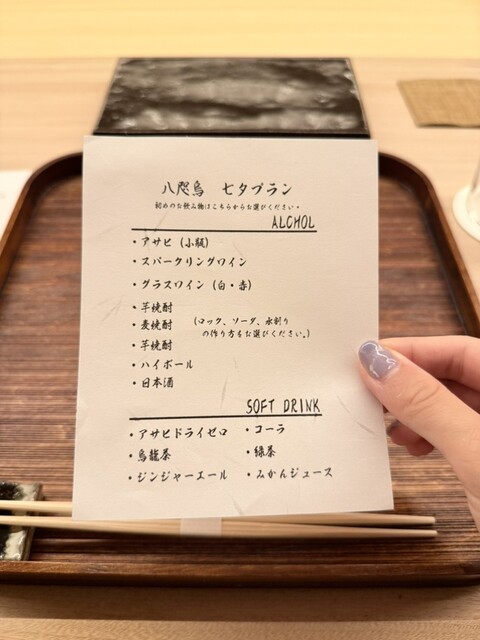 八咫烏 七夕プラン
初めのお飲み物はこちらからお選びください。
ALCHOL
・アサヒ(小瓶)
・スパークリングワイン
・グラスワイン(白・赤)
・芋焼酎
・麦焼酎
・芋焼酎
(ロック、ソーダ、水割り
の作り方をお選びください。)
・ハイボール
・日本酒
SOFT DRINK
・アサヒドライゼロ ・コーラ
・烏龍茶 ・緑茶
・ジンジャーエール ・みかんジュース